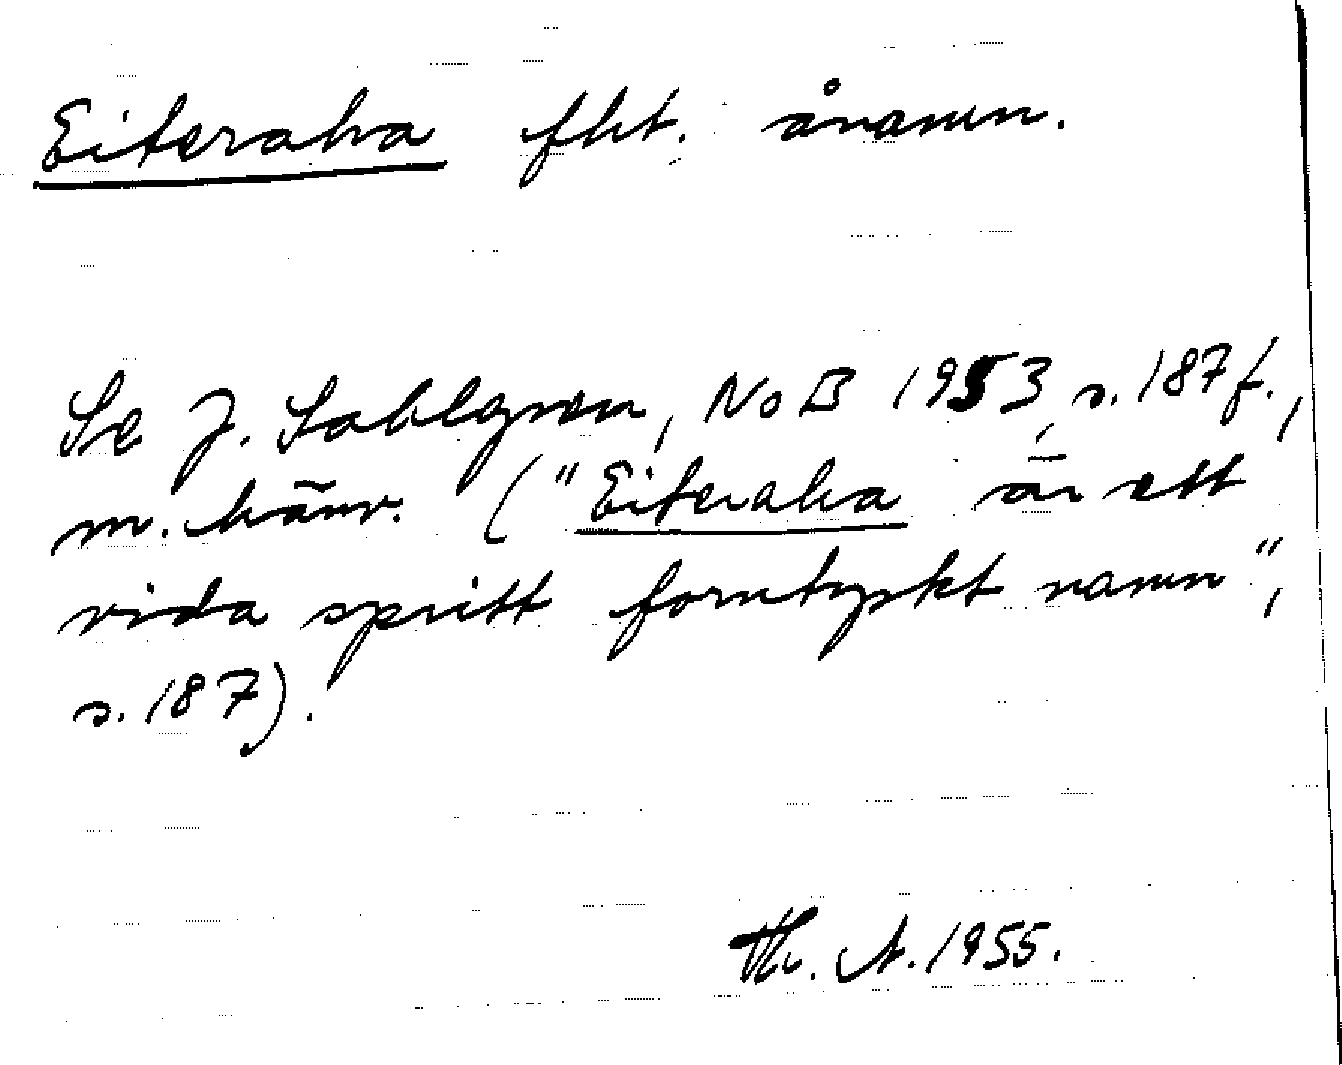 Eiteraha fht. ånamn.
Se J. Sahlgren, NoB 1953, s. 187 f.,
m. hänv. ("Eiteraha är ett
vida spritt forntyskt namn",
s. 187).
Th. A. 1955.